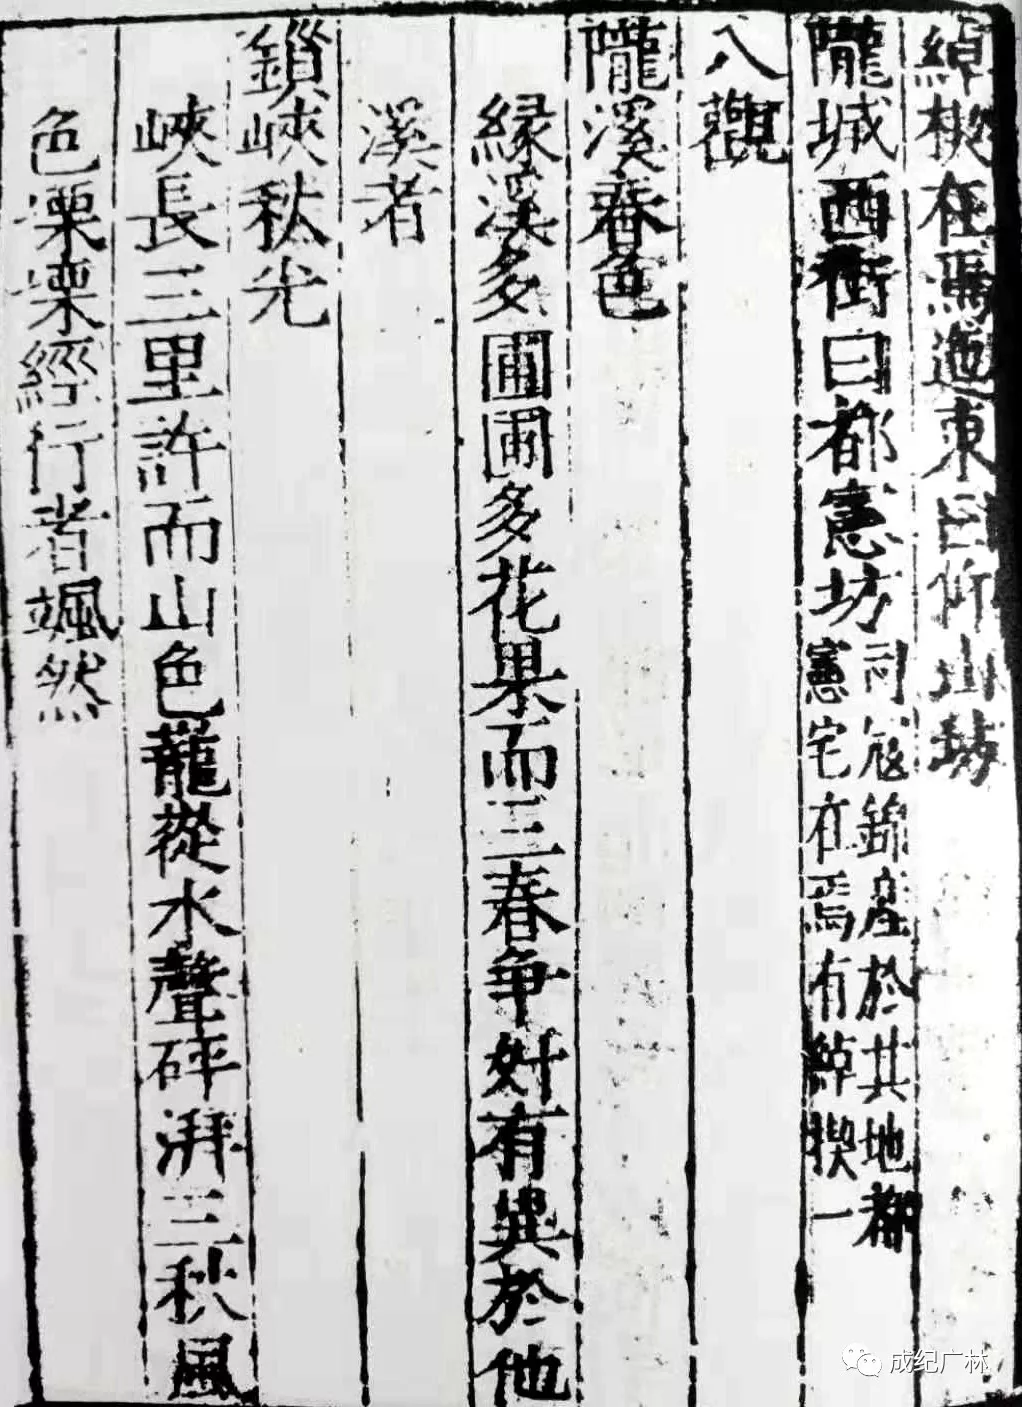 綽楔在焉迤東曰仰山坊
隴城西街曰都憲坊司寇錦産於其地都
憲宅在焉有綽楔一
八觀
隴溪春色
緣溪多圃圃多花果而三春争妍有異於他
溪者
鎖峽秋光
峽長三里許而山色蘢蓯水聲砰湃三秋風
色栗栗經行者颯然
成纪广林